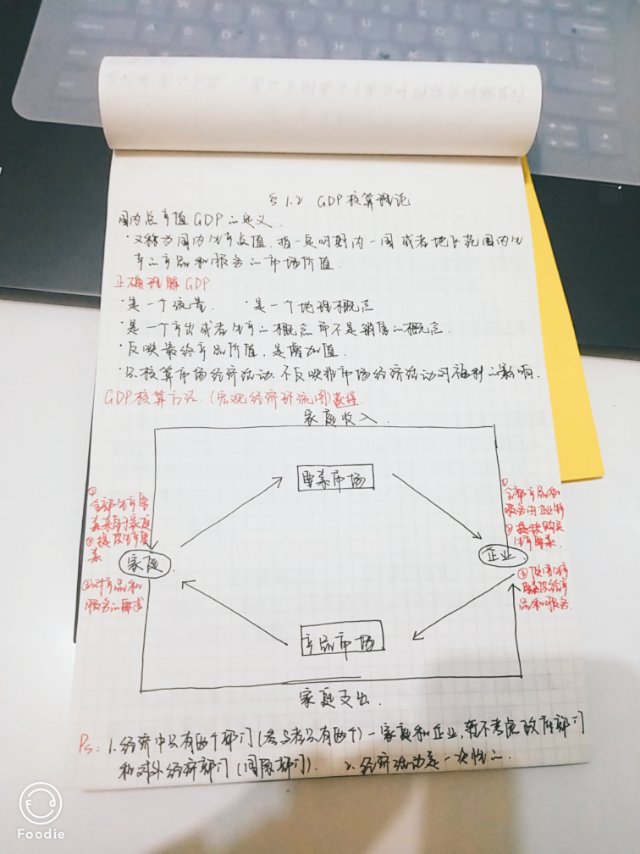 §1.2 GDP核算理论
国内总产值GDP的定义.
·又称为国内生产总值. 指一定时期内一国或者地区范围内生
产的产品和服务的市场价值.
正确理解GDP
·是一个流量. ·是一个地理概念
·是一个产出或者生产的概念而不是销售的概念.
·反映最终产品价值,是附加值.
·只核算市场经济活动.不反映非市场经济活动对福利的影响.
GDP核算方法.(宏观经济环流图)
家庭收入
要素市场
①
全部生产要
素来自于家庭
②提供生产要
素
家庭
③对产品和
服务的要求
①
全部产品和
服务由企业
②提供购买
生产要素.
企业
③
产品和服务.
产品市场
家庭支出
Ps: 1.经济中只有两个部门(参与者只有两个)-家庭和企业,暂不考虑政府部门
和对外经济部门(国际部门). 2.经济活动是一次性的.
Foodie